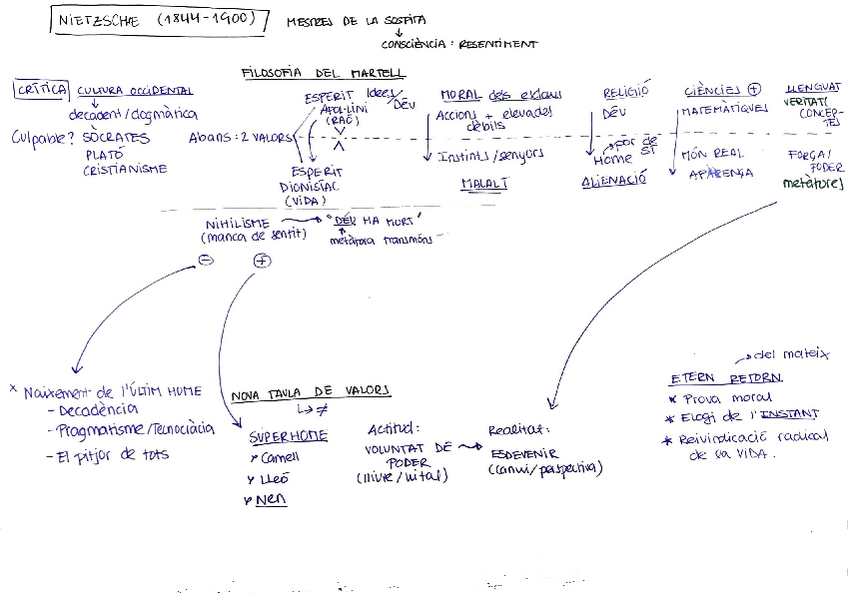 NIETZSCHE (1844-1900)
MESTRES DE LA SOSPITA
CONSCIÈNCIA: RESENTIMENT
FILOSOFIA DEL MARTELL
CRÍTICA CULTURA OCCIDENTAL
decadent/dogmàtica
Culpable? SÒCRATES
PLATÓ
CRISTIANISME
Abans: 2 VALORS
ESPERIT Idees/DÉU
APOL·LINI
(RAÓ)
ESPERIT
DIONISÍAC
(VIDA)
MORAL dels esclaus
Accions + elevades
dèbils
Instints/senyors
MALALT
RELIGIÓ
DÉU
por de
SÍ
Home
ALIENACIÓ
CIÈNCIES +
MATEMÀTIQUES
MÓN REAL
APARENÇA
LLENGUAT
VERITAT/
CONCEP-
TES
FORÇA/
PODER
metàfores
NIHILISME → "DÉU HA MORT"
(manca de sentit)
metàfora transmóns
- +
* Naixement de l'ÚLTIM HOME
- Decadència
- Pragmatisme/Tecnocràcia
- El pitjor de tots
NOVA TAULA DE VALORS
↳ ≠
SUPERHOME
Camell
Lleó
Nen
Actitud:
VOLUNTAT DE
PODER
(lliure/vital)
Realitat:
ESDEVENIR
(canvi/perspectiva)
del mateix
ETERN RETORN
* Prova moral
* Elogi de l'INSTANT
* Reivindicació radical
de la VIDA.